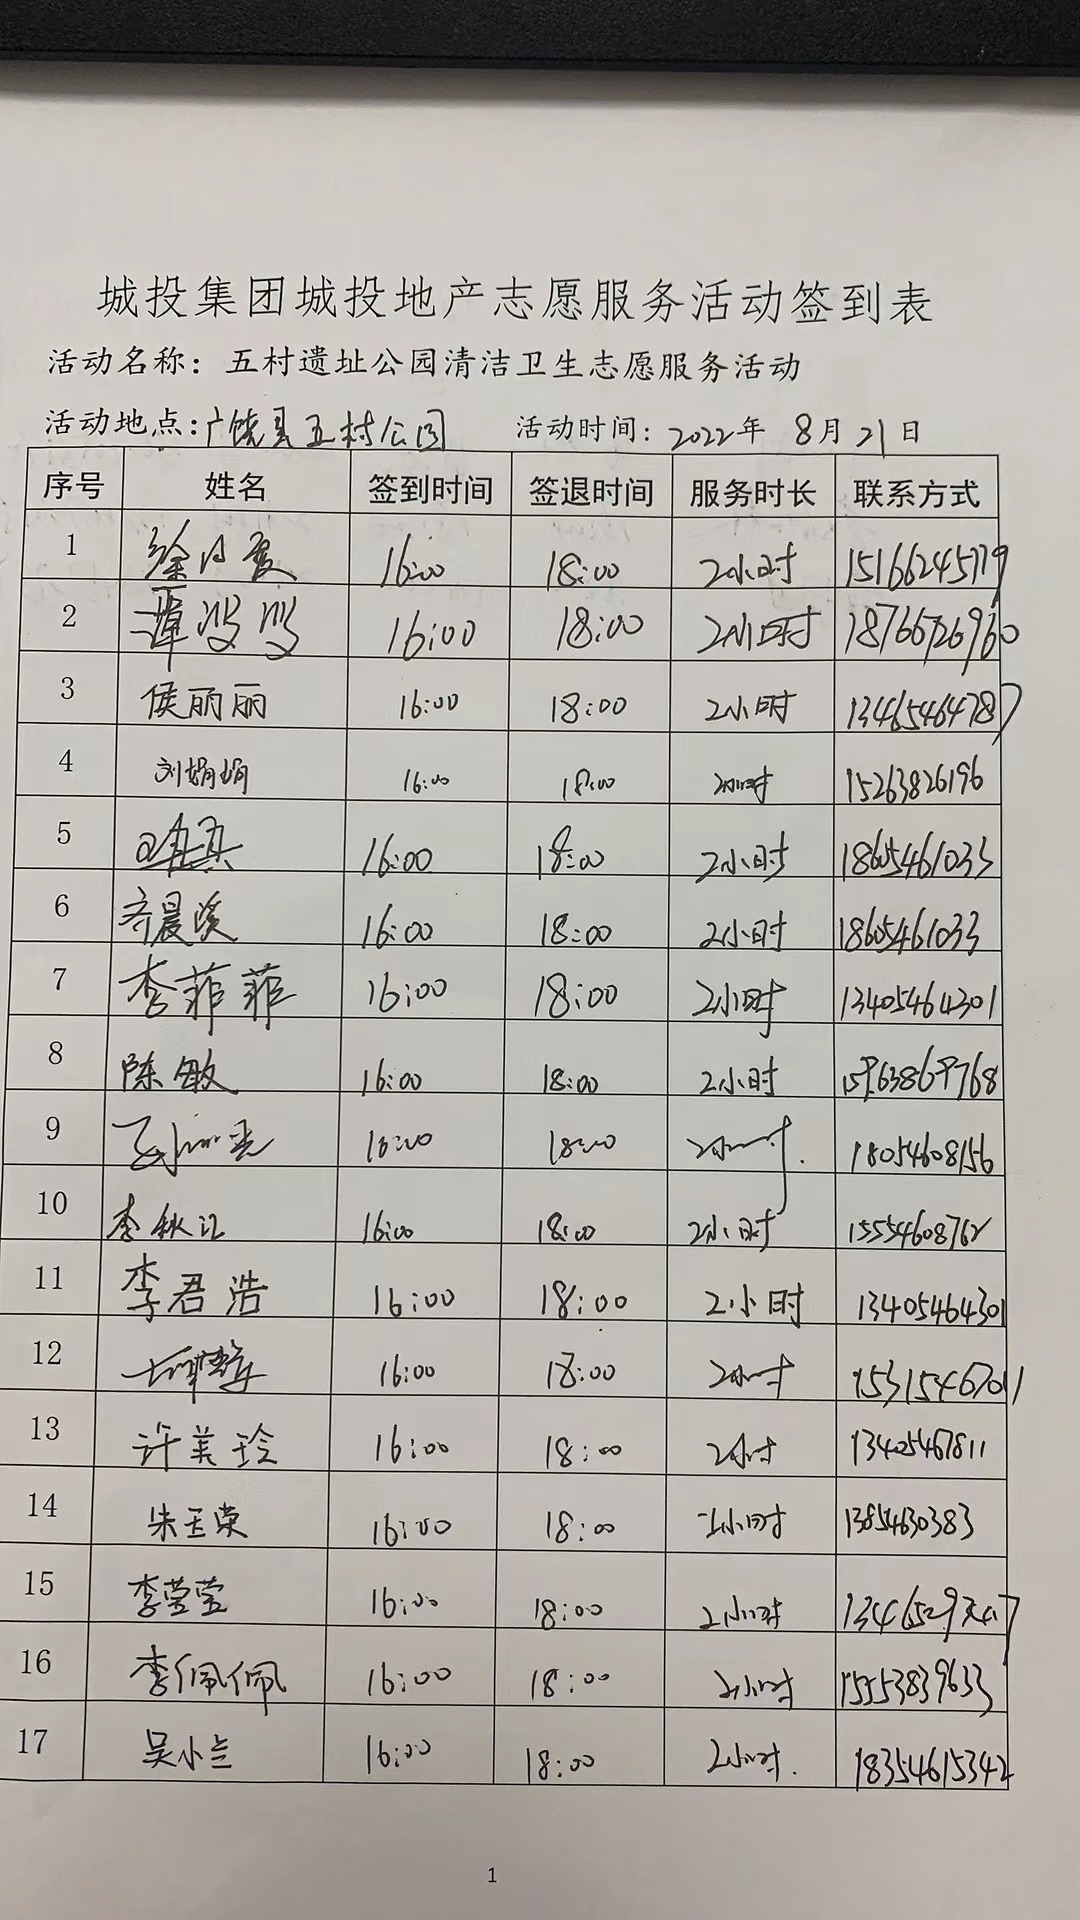 城投集团城投地产志愿服务活动签到表
活动名称：五村遗址公园清洁卫生志愿服务活动
活动地点：广饶县五村公园 活动时间：2022年 8月21日
序号 姓名 签到时间 签退时间 服务时长 联系方式
1 16:00 18:00 2小时
2 16:00 18:00 2小时 18766726960
3 侯丽丽 16:00 18:00 2小时 13465464787
4 刘娟娟 16:00 18:00 2小时 15263826196
5 16:00 18:00 2小时 18605461033
6 齐晨溪 16:00 18:00 2小时 18605461033
7 李菲菲 16:00 18:00 2小时 13405464301
8 陈敏 16:00 18:00 2小时 15963869768
9 16:00 18:00 2小时. 18054608156
10 李秋江 16:00 18:00 2小时 15554608762
11 李君浩 16:00 18:00 2小时 13405464301
12 16:00 18:00 2小时 15315467011
13 许美玲 16:00 18:00 2小时 13405467811
14 朱玉荣 16:00 18:00 2小时 13854630383
15 李莹莹 16:00 18:00 2小时
16 李佩佩 16:00 18:00 2小时 15553839633
17 吴小兰 16:00 18:00 2小时. 18354615342
1